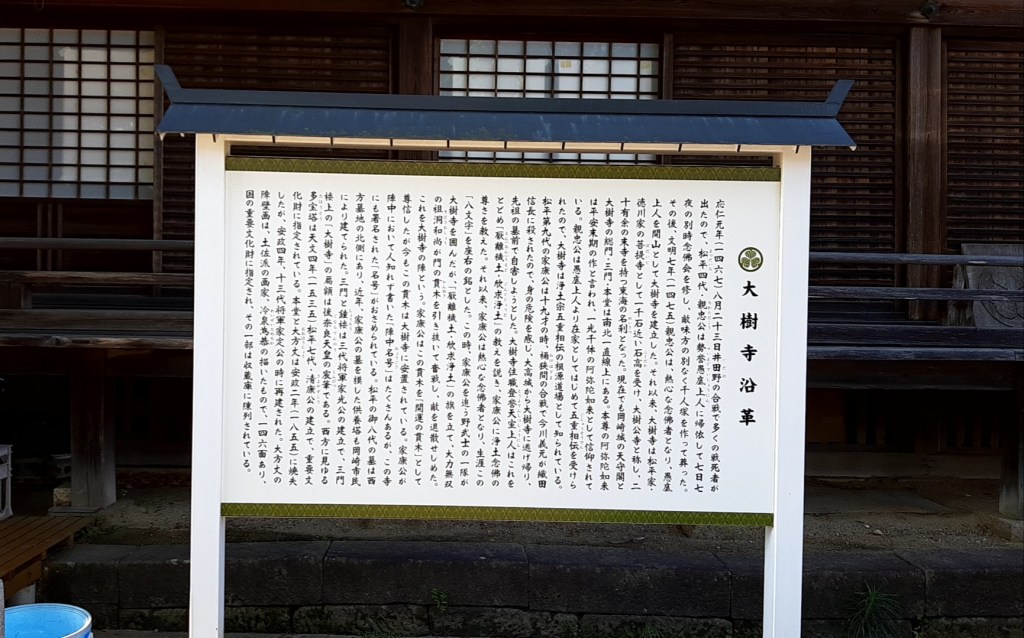 大樹寺沿革
応仁元年(一四六七)八月二十三日井田野の合戦で多くの戦死者が
出たので、松平四代、親忠公は勢誉愚底上人に帰依して七日七
夜の別時念佛会を修し、敵味方の別なく千人塚を作って葬った。
その後、文明七年(一四七五)親忠公は、熱心な念佛者となり、愚底
上人を開山として大樹寺を建立した。それ以来、大樹寺は松平家・
徳川家の菩提寺として一千石近い石高を受け、大樹公寺と称し、二
十有余の末寺を持つ東海の名刹となった。現在でも岡崎城の天守閣と
大樹寺の総門・三門・本堂は南北一直線上にある。本尊の阿弥陀如来
は平安末期の作と言われ、一光千体の阿弥陀如来として信仰されて
いる。親忠公は愚底上人より在家としてはじめて五重相伝を受けら
れたので、大樹寺は浄土宗五重相伝の根源道場として知られている。
松平第九代の家康公は十九才の時、桶狭間の合戦で今川義元が織田
信長に殺されたので、身の危険を感じ、大高城から大樹寺に逃げ帰り、
先祖の墓前で自害しようとした。大樹寺住職登誉天室上人はこれを
とどめ「厭離穢土・欣求浄土」の教えを説き、家康公に浄土念佛の
尊さを教えた。それ以来、家康公は熱心な念佛者となり、生涯この
「八文字」を座右の銘とした。この時、家康公を追う野武士の一隊が
大樹寺を囲んだが、「厭離穢土・欣求浄土」の旗を立て、大力無双
の祖洞和尚が門の貫木を引き抜いて奮戦し、敵を退散せしめた。
これを大樹寺の陣という。家康公はこの貫木を「開運の貫木」として
尊信したが今もこの貫木は大樹寺に安置されている。家康公が
陣中において人知れず書いた「陣中名号」はたくさんあるが、この寺
にも署名された「名号」がおさめられている。松平の御八代の墓は西
方墓地の北側にあり、近年、家康公の墓を模した供養塔も岡崎市民
により建てられた。三門と鐘楼は三代将軍家光公の建立で、三門
楼上の「大樹寺」の扁額は後奈良天皇の宸筆である。西方に見ゆる
多宝塔は天文四年(一五三五)松平七代、清康公の建立で、重要文
化財に指定されている。本堂と大方丈は安政二年(一八五五)に焼失
したが、安政四年、十三代将軍家定公の時に再建された。大方丈の
障壁画は、土佐派の画家、冷泉為恭の描いたもので、一四六面あり、
国の重要文化財に指定され、その一部は収蔵庫に陳列されている。